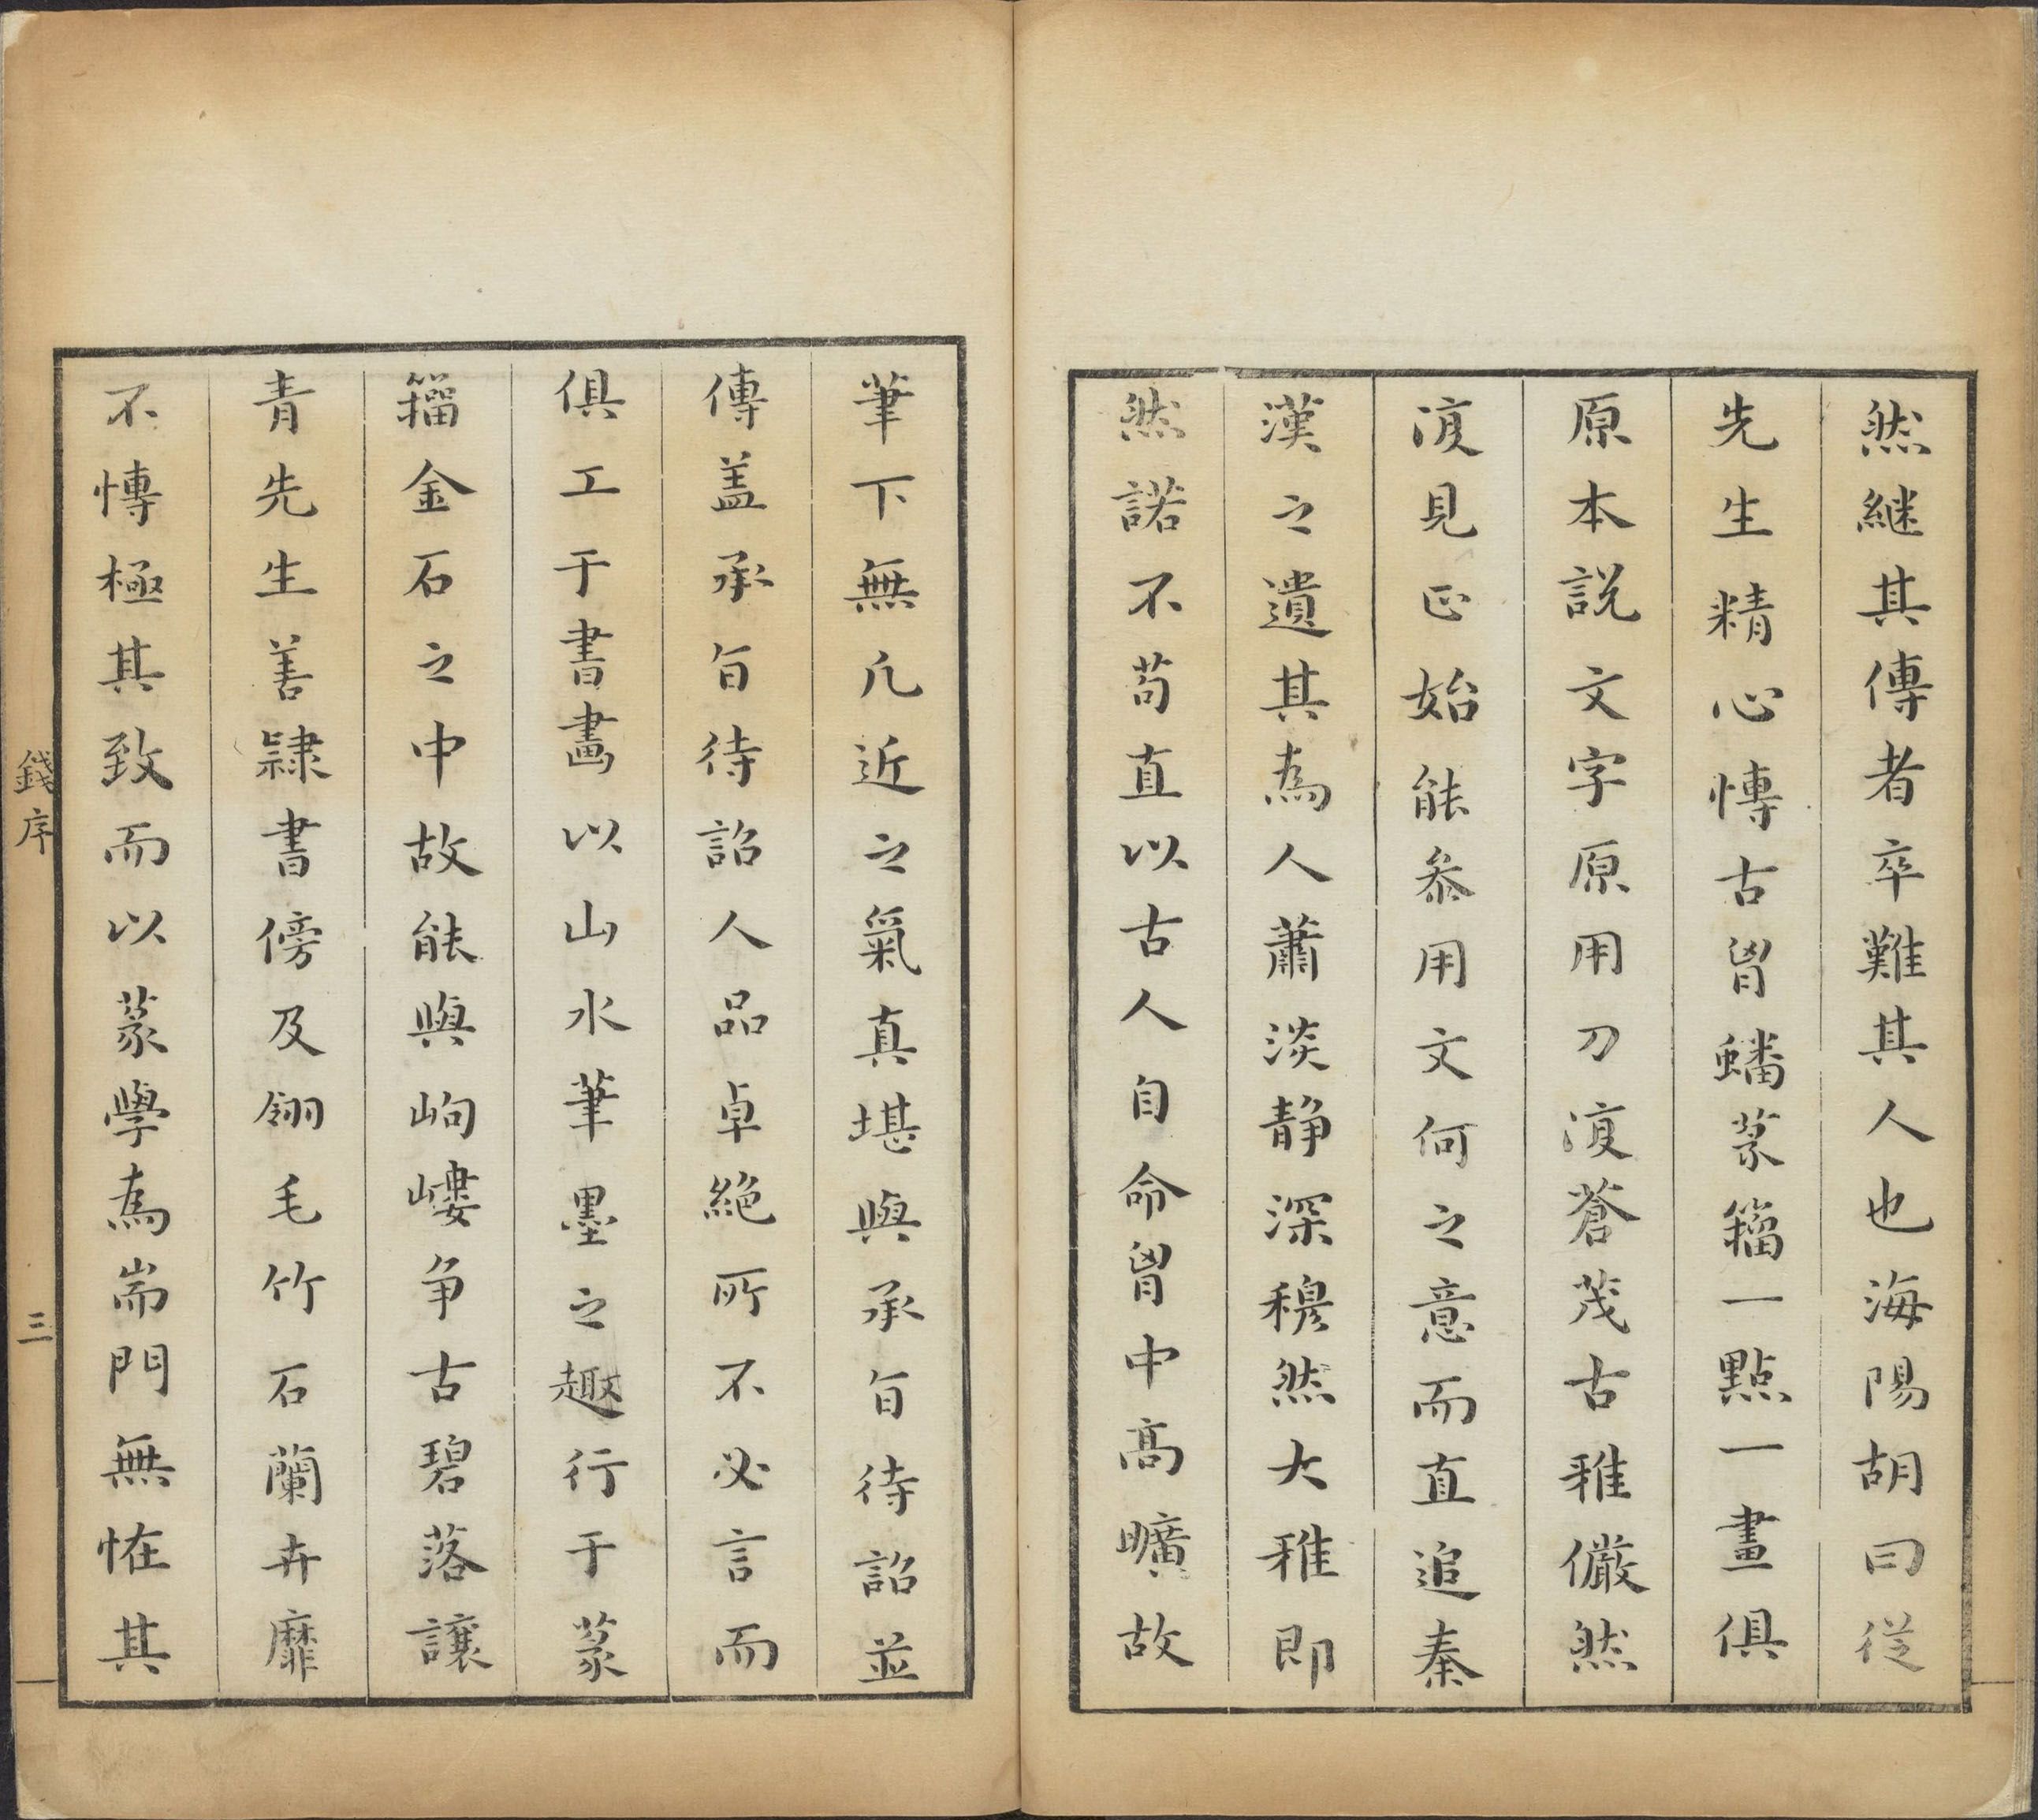 然継其傳者卒難其人也海陽胡曰従
先生精心慱古胷蟠篆籀一點一畫俱
原本説文字原用刀復蒼茂古雅儼然
復見正始能叅用文何之意而直追秦
漢之遺其為人蕭淡静深穆然大雅即
然諾不苟直以古人自命胷中髙曠故
筆下無凡近之氣真堪與承旨待詔並
傳盖承旨待詔人品卓絶所不必言而
俱工于書畵以山水筆墨之趣行于篆
籀金石之中故能與岣嶁争古碧落讓
青先生善隸書傍及翎毛竹石蘭卉靡
不慱極其致而以篆學為耑門無恠其
錢序
三